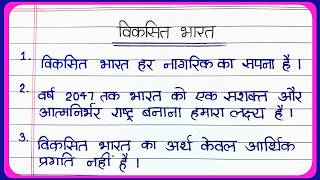 विकसित भारत
1. विकसित भारत हर नागरिक का सपना है।
2. वर्ष 2047 तक भारत को एक सशक्त और
आत्मनिर्भर राष्ट्र बनाना हमारा लक्ष्य है।
3. विकसित भारत का अर्थ केवल आर्थिक
प्रगति नहीं है।